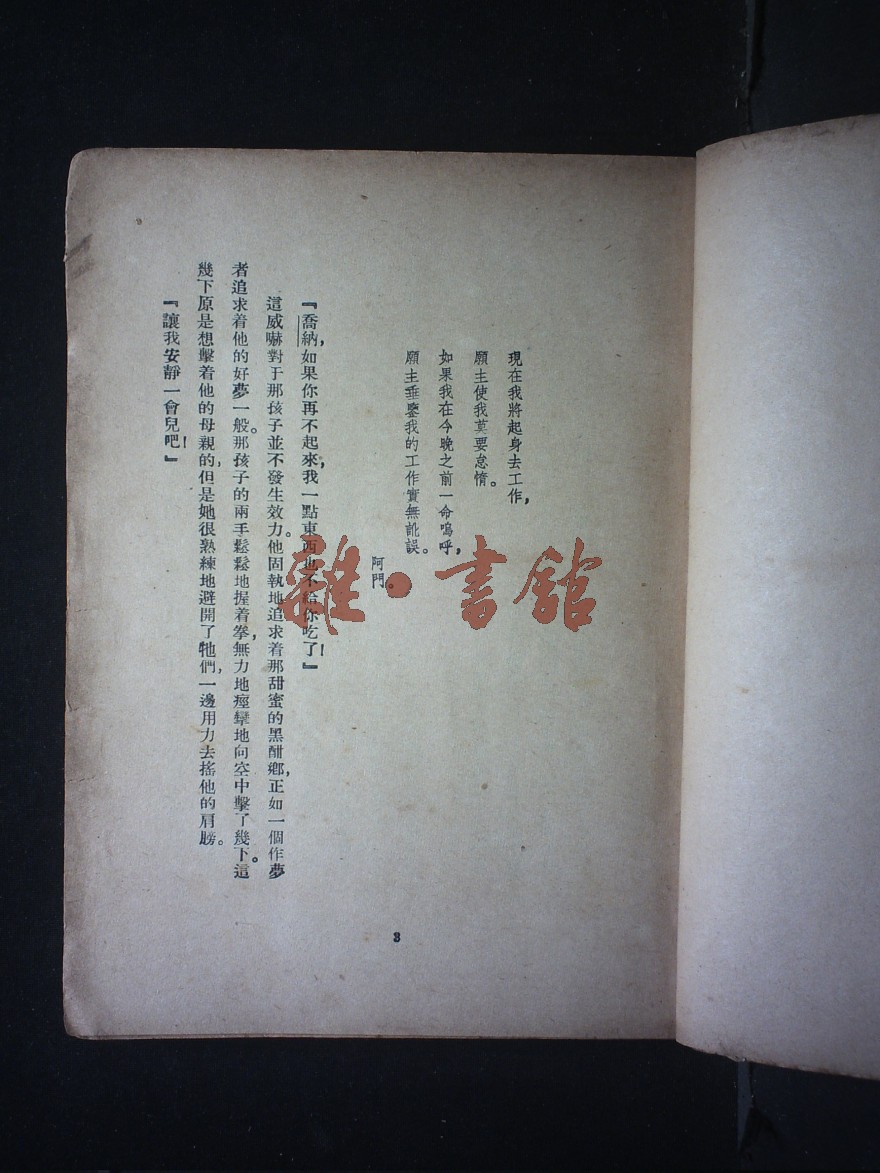 現在我將起身去工作，
願主使我莫要怠惰。
如果我在今晚之前一命嗚呼，
願主垂鑒我的工作實無訛誤。
阿門。
『喬納，如果你再不起來，我一點東西也不給你吃了！』
這威嚇對于那孩子並不發生效力。他固執地追求着那甜蜜的黑酣鄉，正如一個作夢
者追求着他的好夢一般。那孩子的兩手鬆鬆地握着拳，無力地痙攣地向空中擊了幾下。這
幾下原是想擊着他的母親的，但是她很熟練地避開了牠們，一邊用力去搖他的肩膀。
『讓我安靜一會兒吧！』
3
雜·書館